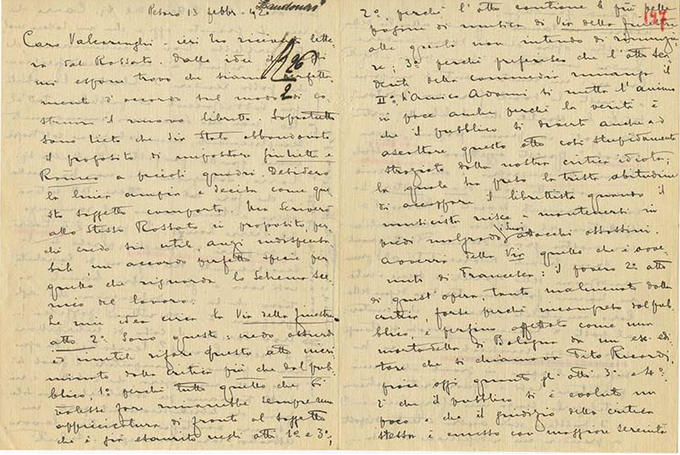 Zandonai
Pesaro 13 febbr.
26/2
Caro Valcarenghi - ieri ho ricevuto lette-
ra dal Rossato. Dalle idee
mi espone trovo che siamo perfetta-
mente d'accordo sul modo di co-
struire il nuovo libretto. Sopratutto
sono lieto che sia stato abbandonato
il proposito di impostare Giulietta e
Romeo a piccoli quadri. Desidero
la linea ampia e decisa come que-
sto soggetto comporta. Ma scriverò
allo stesso Rossato in proposito per-
chè credo sia utile, anzi indispensa-
bile, un accordo perfetto specie per
quello che riguarda lo schema sce-
nico del lavoro.
Le mie idee circa la Via della finestra
atto 2° sono queste: credo assurdo
ed inutile rifare questo atto incri-
minato dalla critica più che dal pub-
blico, 1° perchè tutto quello che si
volesse fare rimarrebbe sempre una
appiccicatura di fronte al soggetto
che è già esaurito negli atti 1° e 3°;
147
2° perchè l'atto contiene le più belle
pagine di musica di Via della finestra
alle quali non intendo di rinunzia-
re; 3° perchè preferisco che l'atto
della commedia rimanga il
II°. L'amico Adami si metta l'animo
in pace anche perchè la verità è
che il pubblico si diverte anche ad
ascoltare questo atto così stupidamente
straziato dalla nostra critica idiota;
la quale ha preso la triste abitudine
di accoppare il librettista quando il
musicista riesce a mantenersi in
piedi malgrado i suoi attacchi assassini.
Avverrà della Via quello che è avve-
nuto di Francesca: il povero 2° atto
di quest'opera, tanto malmenato dalla
critica, forse perchè incompreso dal pub-
blico e perfino definito come una
mortadella di Bologna da un ex edi-
tore che si chiamava Tito Ricordi,
piace oggi quanto gli atti 3° e 4°.
È che il pubblico si è evoluto un
poco e che il giudizio della critica
stessa è emesso con maggiore serenità